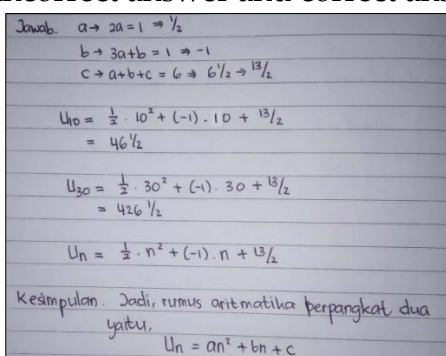 Jawab. a → 2a = 1 ⇒ 1/2
b → 3a+b = 1 ⇒ -1
c → a+b+c = 6 ⇒ 6 1/2 → 13/2
U10 = 1/2 . 10² + (-1) . 10 + 13/2
= 46 1/2
U30 = 1/2 . 30² + (-1) . 30 + 13/2
= 426 1/2
Un = 1/2 . n² + (-1) . n + 13/2
Kesimpulan. Jadi, rumus aritmatika berpangkat dua
yaitu,
Un = an² + bn + c